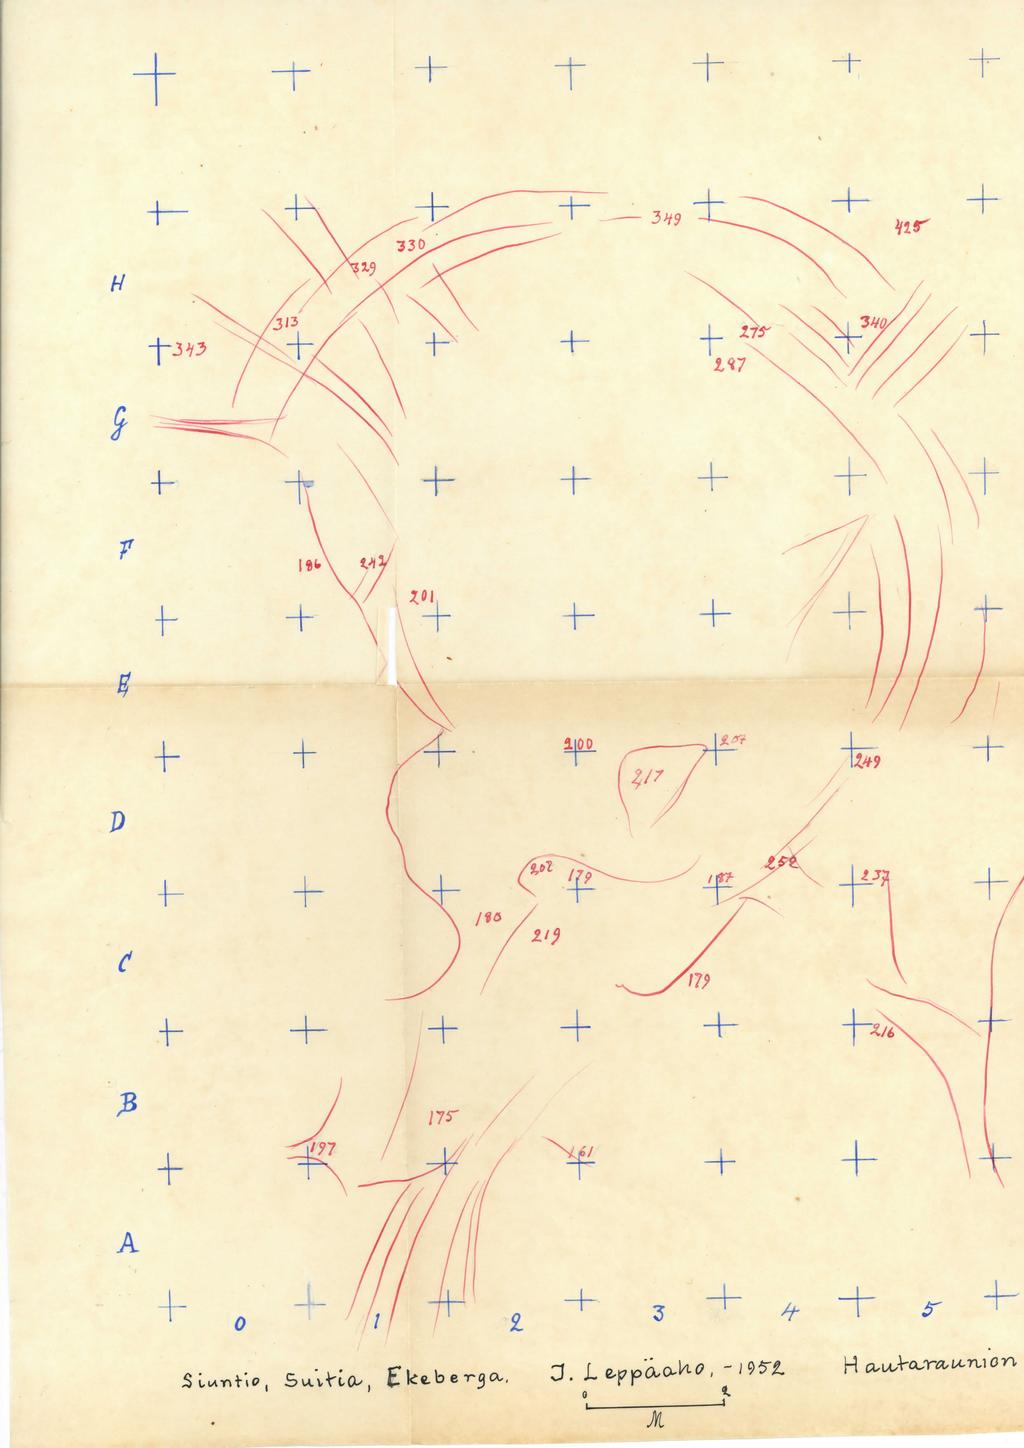 349
425
330
329
H
313
340
343
275
287
G
F
186
242
201
E
200
207
249
217
D
202
179
187
252
237
180
219
C
179
216
B
175
197
161
A
0 1 2 3 4 5
Siuntio, Suitia, Ekeberga. J. Leppäaho, -1952 Hautaraunion
0 2
M